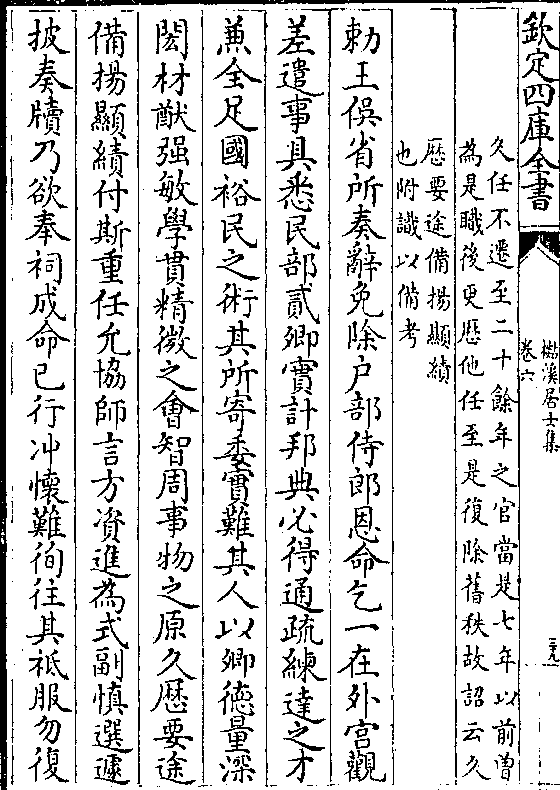 欽定四庫全書
檆溪居士集
卷六
三九
久任不遷至二十餘年之官當是七年以前曾
為是職後更歴他任至是復除舊秩故詔云久
歴要途備揚顯績
也附識以備考
勅王俁省所奏辭免除户部侍郎恩命乞一在外宫觀
差遣事具悉民部貳卿實計邦典必得通疏練達之才
兼全足國裕民之術其所寄委實難其人以卿徳量深
閎材猷强敏學貫精微之會智周事物之原久歴要途
備揚顯績付斯重任允協師言方資進為式副慎選遽
披奏牘乃欲奉祠成命已行冲懷難徇往其祗服勿復